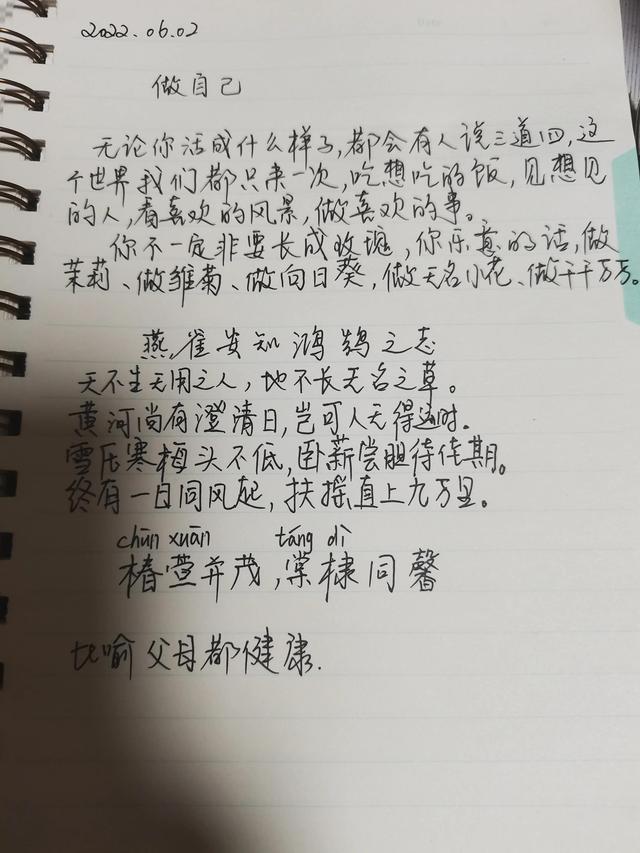 2022.06.02
做自己
无论你活成什么样子,都会有人说三道四,这
个世界我们都只来一次,吃想吃的饭,见想见
的人,看喜欢的风景,做喜欢的事。
你不一定非要长成玫瑰,你乐意的话,做
茉莉、做雏菊、做向日葵,做无名小花、做千千万万。
燕雀安知鸿鹄之志
天不生无用之人,地不长无名之草。
黄河尚有澄清日,岂可人无得运时.
雪压寒梅头不低,卧薪尝胆待佳期。
终有一日同风起,扶摇直上九万里。
chūn xuān táng dì
椿萱并茂,棠棣同馨
比喻父母都健康.